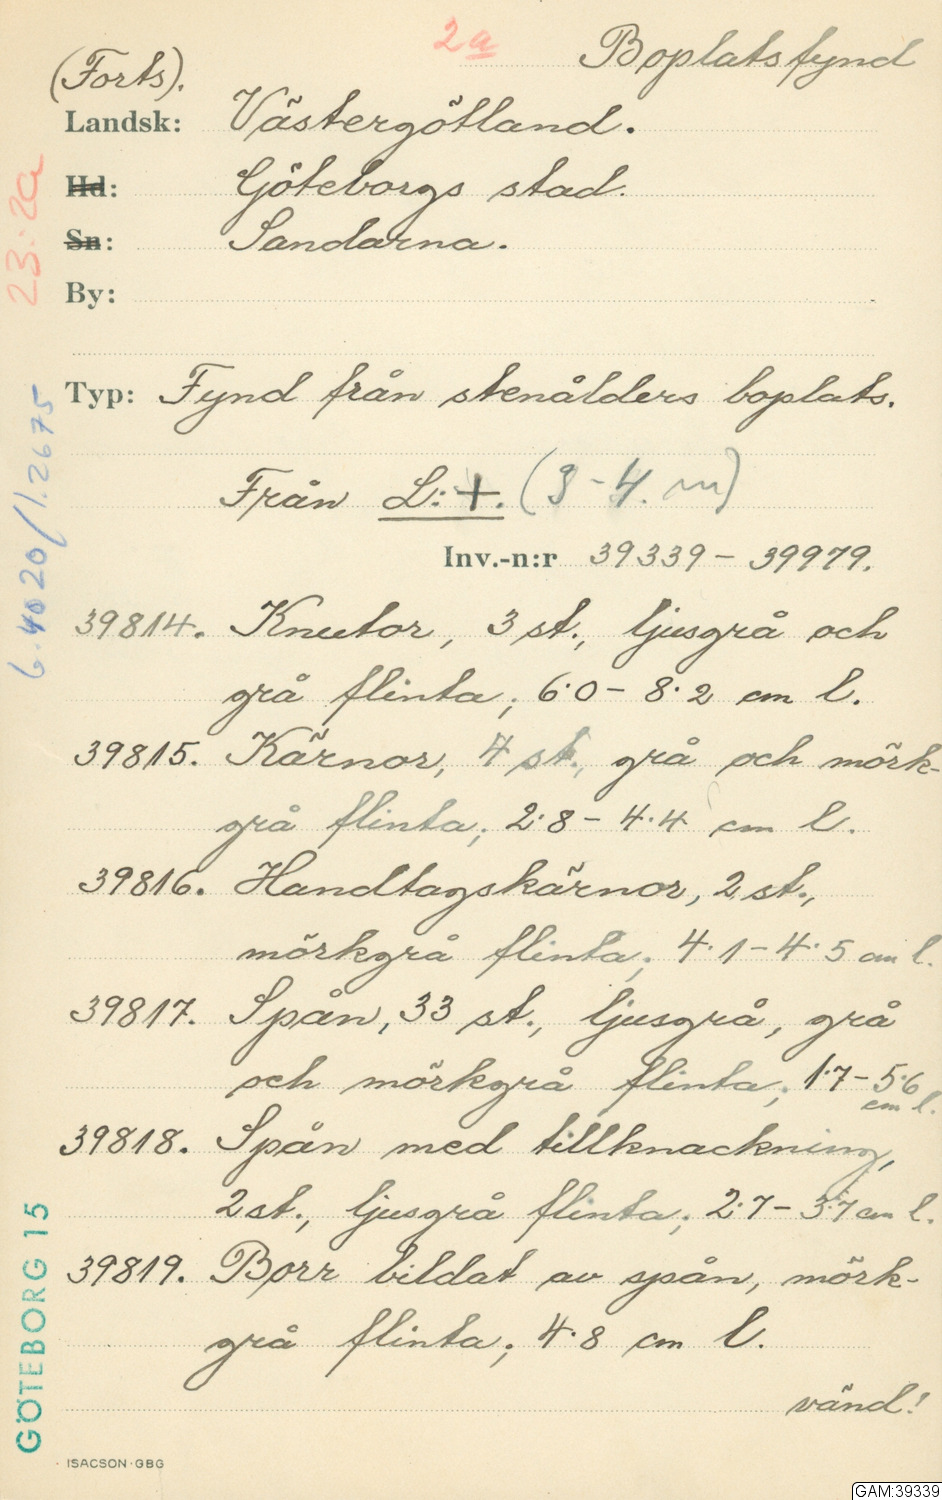 2a
Boplatsfynd
(Forts).
Landsk: Västergötland.
Hd: Göteborgs stad.
Sn: Sandarna.
By:
Typ: Fynd från stenålders boplats.
Från L:+. (3-4. m)
Inv.-n:r 39339 - 39979.
39814. Knutor, 3 st., ljusgrå och
grå flinta; 6·0 - 8·2 cm l.
39815. Kärnor, 4 st., grå och mörk-
grå flinta; 2·8 - 4·4 cm l.
39816. Handtagskärnor, 2 st.,
mörkgrå flinta; 4·1 - 4·5 cm l.
39817. Spån, 33 st., ljusgrå, grå
och mörkgrå flinta; 1·7 - 5·6
cm l.
39818. Spån med tillknackning,
2 st., ljusgrå flinta; 2·7 - 3·7 cm l.
39819. Borr bildat av spån, mörk-
grå flinta; 4·8 cm l.
vänd!
23:2a
6.4020/1.2675
GÖTEBORG 15
ISACSON·GBG
GAM:39339